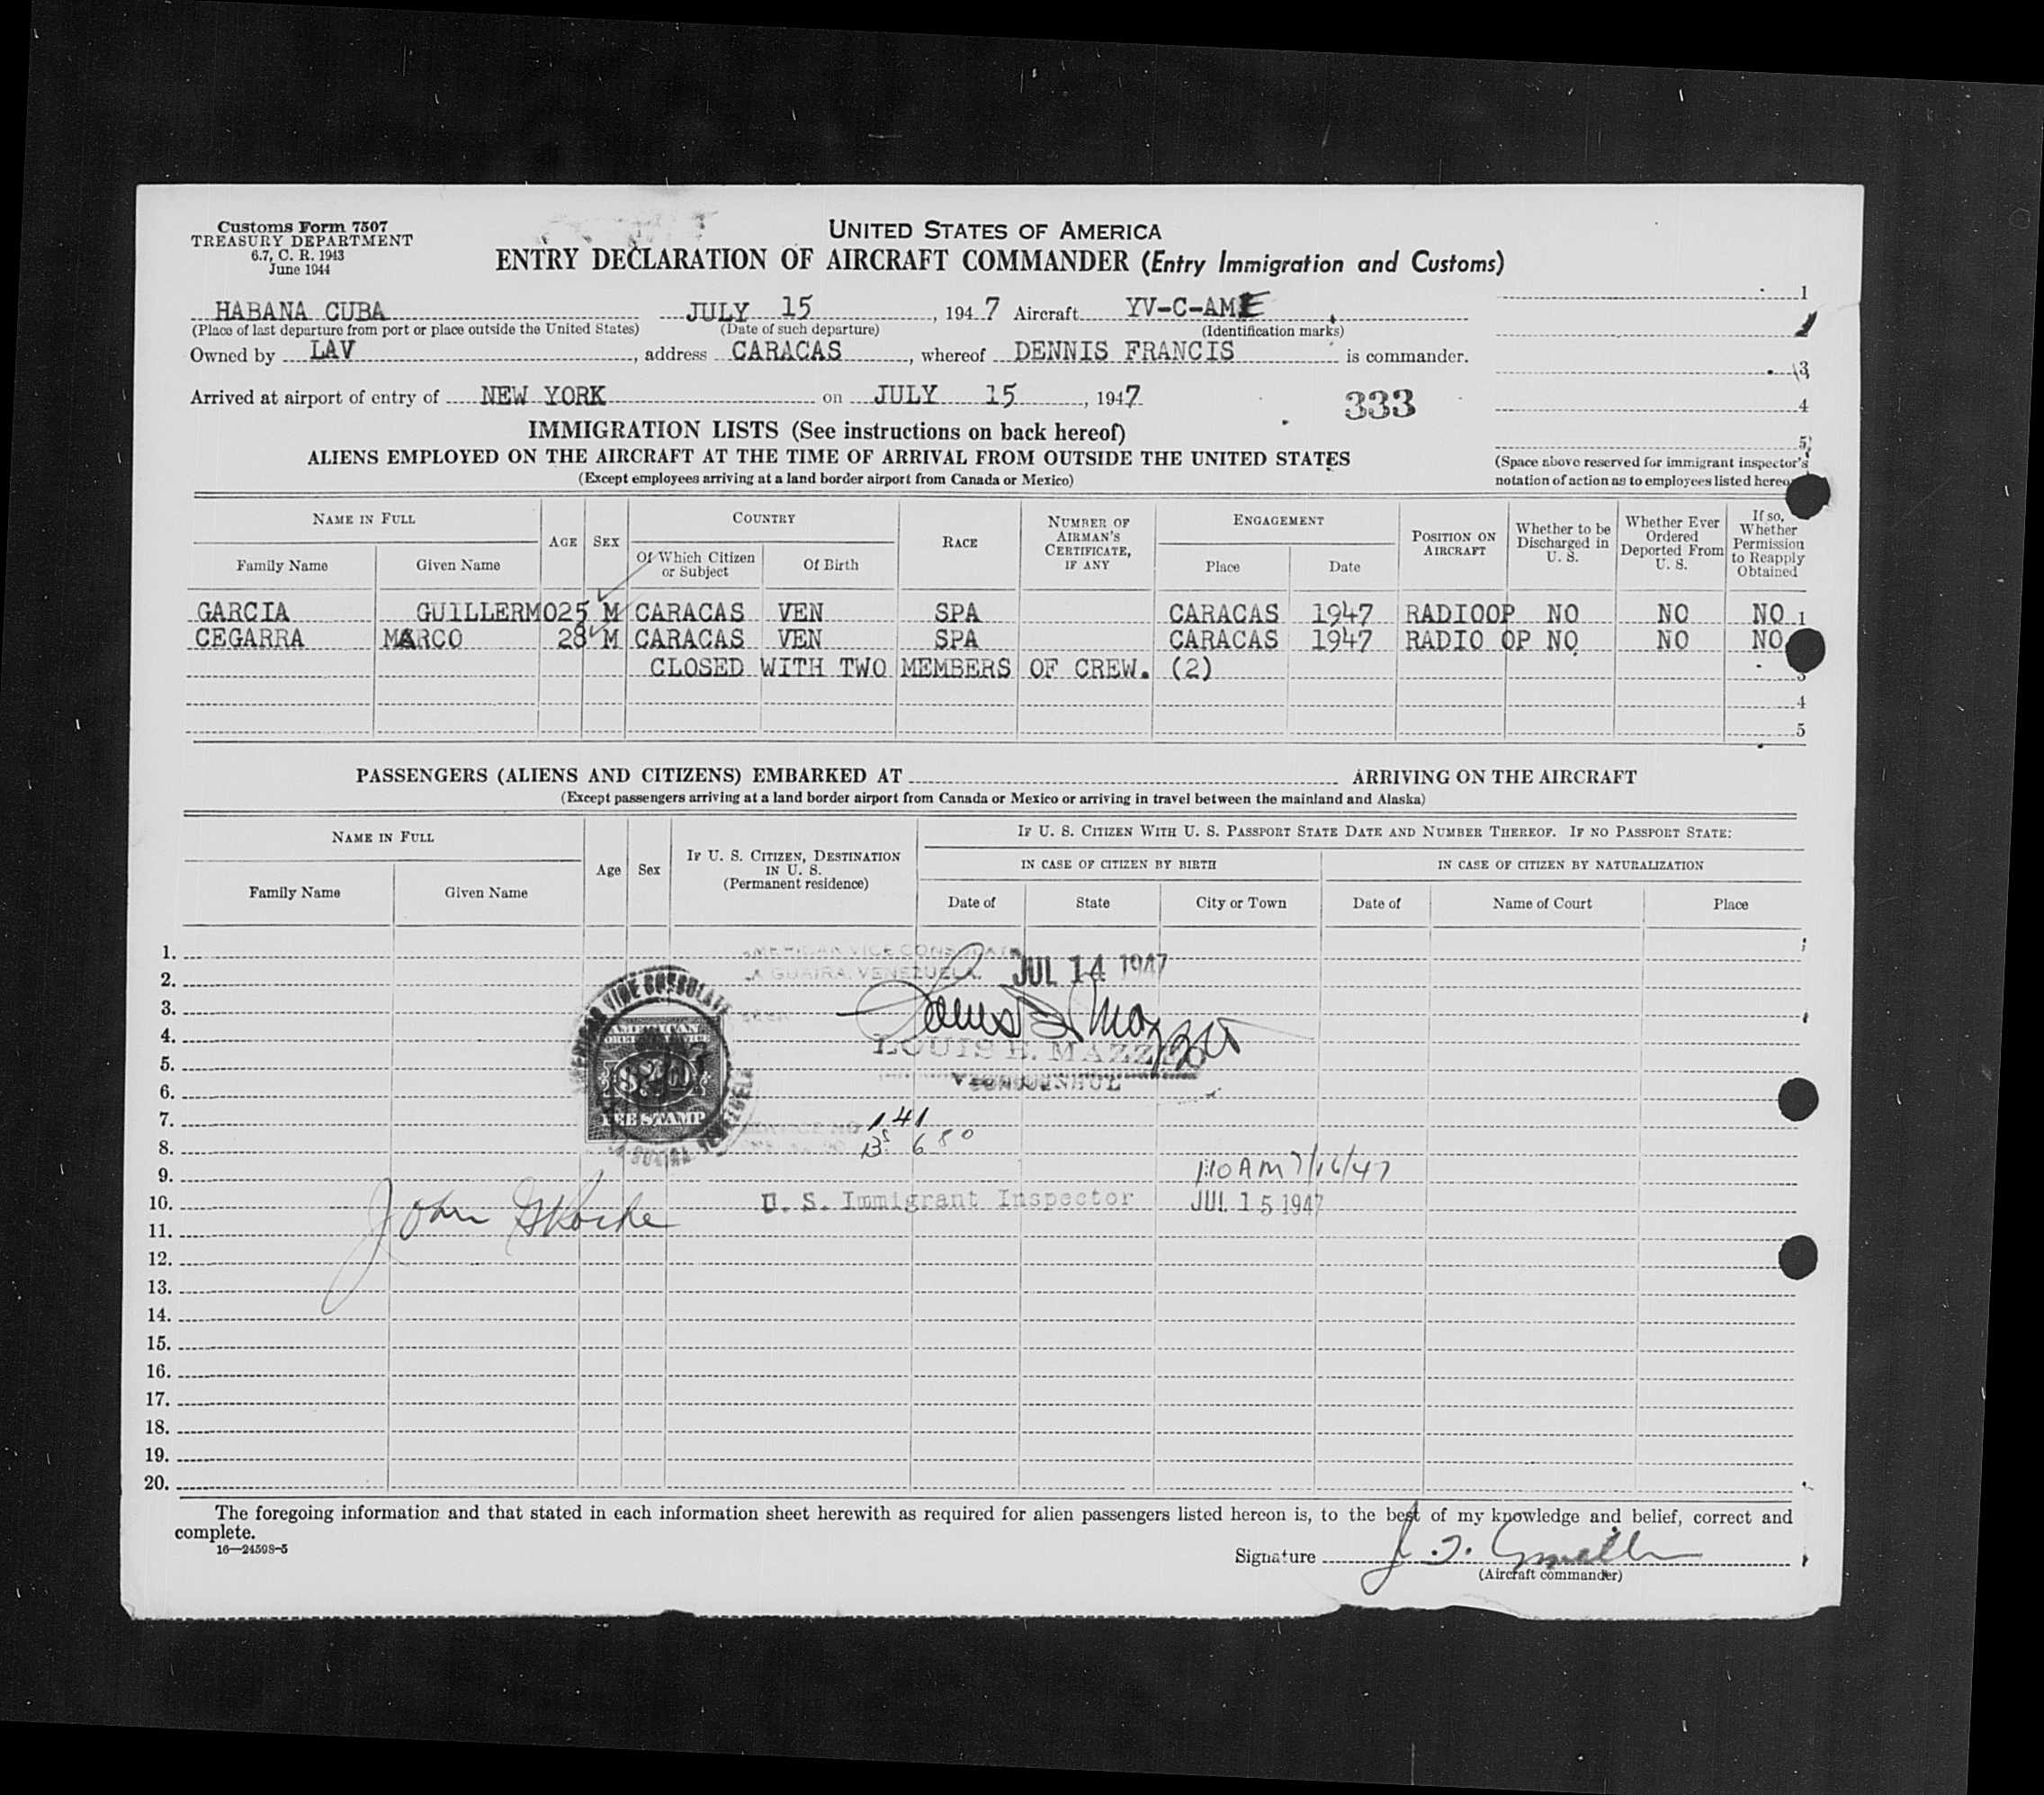 Customs Form 7507
TREASURY DEPARTMENT
6.7, C. R. 1943
June 1944
UNITED STATES OF AMERICA
ENTRY DECLARATION OF AIRCRAFT COMMANDER (Entry Immigration and Customs)
HABANA CUBA JULY 15, 1947 Aircraft YV-C-AME
(Place of last departure from port or place outside the United States) (Date of such departure) (Identification marks)
Owned by LAV, address CARACAS, whereof DENNIS FRANCIS is commander.
Arrived at airport of entry of NEW YORK on JULY 15, 1947
333
1
3
4
5
(Space above reserved for immigrant inspector's
notation of action as to employees listed hereo
IMMIGRATION LISTS (See instructions on back hereof)
ALIENS EMPLOYED ON THE AIRCRAFT AT THE TIME OF ARRIVAL FROM OUTSIDE THE UNITED STATES
(Except employees arriving at a land border airport from Canada or Mexico)
NAME IN FULL
Family Name Given Name
AGE SEX
COUNTRY
Of Which Citizen or Subject Of Birth
RACE
NUMBER OF AIRMAN'S CERTIFICATE, IF ANY
ENGAGEMENT
Place Date
POSITION ON AIRCRAFT
Whether to be Discharged in U. S.
Whether Ever Ordered Deported From U. S.
If so, Whether Permission to Reapply Obtained
GARCIA GUILLERMO 25 M CARACAS VEN SPA CARACAS 1947 RADIOOP NO NO NO 1
CEGARRA MARCO 28 M CARACAS VEN SPA CARACAS 1947 RADIO OP NO NO NO
CLOSED WITH TWO MEMBERS OF CREW. (2) 3
4
5
PASSENGERS (ALIENS AND CITIZENS) EMBARKED AT ARRIVING ON THE AIRCRAFT
(Except passengers arriving at a land border airport from Canada or Mexico or arriving in travel between the mainland and Alaska)
NAME IN FULL
Family Name Given Name
Age Sex
IF U. S. CITIZEN, DESTINATION IN U. S. (Permanent residence)
IF U. S. CITIZEN WITH U. S. PASSPORT STATE DATE AND NUMBER THEREOF. IF NO PASSPORT STATE:
IN CASE OF CITIZEN BY BIRTH IN CASE OF CITIZEN BY NATURALIZATION
Date of State City or Town Date of Name of Court Place
1.
AMERICAN VICE CONSULATE
2.
LA GUAIRA, VENEZUELA. JUL 14 1947
3.
4.
LOUIS E. MAZZ
5.
6.
AMERICAN VICE CONSULATE
LA GUAIRA VENEZUELA
AMERICAN
FEE STAMP
7.
SERVICE NO 141
8.
Bs 6 80
9.
1:10 AM 7/16/47
10.
U. S. Immigrant Inspector JUL 15 1947
11.
John
12.
13.
14.
15.
16.
17.
18.
19.
20.
The foregoing information and that stated in each information sheet herewith as required for alien passengers listed hereon is, to the best of my knowledge and belief, correct and
complete.
16—24598-5
Signature
(Aircraft commander)